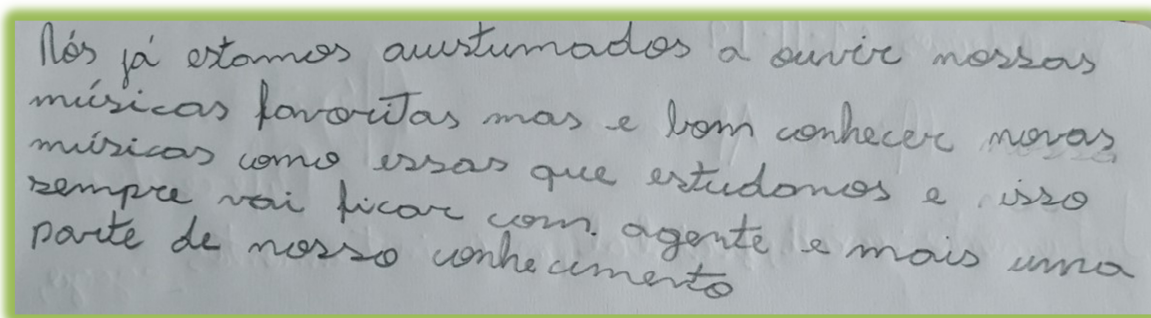 Nós já estamos austumados a ouvir nossas
músicas favoritas mas e bom conhecer novas
músicas como essas que estudonos e isso
sempre vai ficar com agente e mais uma
parte de nosso conhecimento